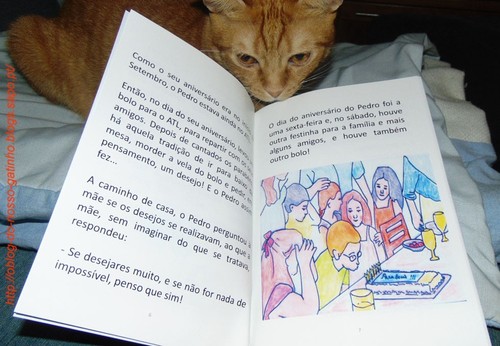 Como o seu aniversário era no
Setembro, o Pedro estava ainda no
Então, no dia do seu aniversário,
bolo para o ATL, para repartir com os
amigos. Depois de cantados os parabéns
há aquela tradição de ir para baixo
mesa, morder a vela do bolo e pedir, em
pensamento, um desejo! E o Pedro assim
fez...
A caminho de casa, o Pedro perguntou à
mãe se os desejos se realizavam, ao que a
mãe, sem imaginar do que se tratava,
respondeu:
- Se desejares muito, e se não for nada de
impossível, penso que sim!
6
O dia do aniversário do Pedro foi a
uma sexta-feira e, no sábado, houve
outra festinha para a família e mais
alguns amigos, e houve também
outro bolo!
Parabéns !!!
7